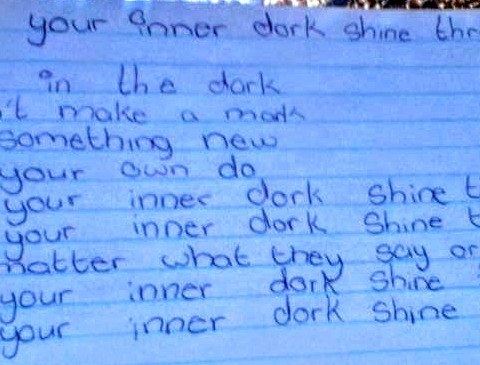 your inner dork shine thr
in the dark
't make a mark
something new
your own do
your inner dork shine t
your inner dork shine t
matter what they say or
your inner dork shine
your inner dork shine